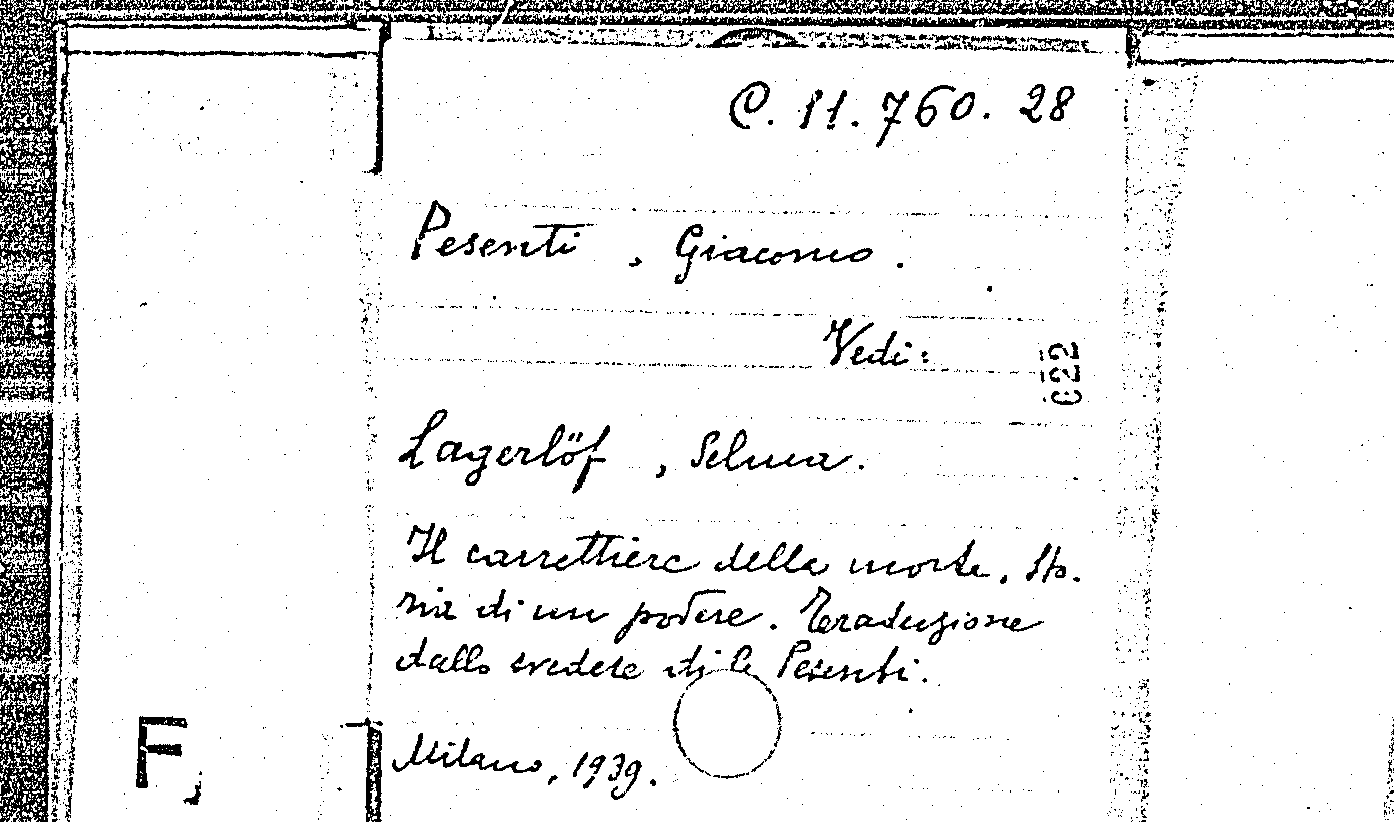 C. 11. 760. 28
Pesenti, Giacomo.
Vedi:
C22
Lagerlöf, Selma.
Il carrettiere della morte. Sto-
ria di un podere. Traduzione
dallo svedese di G. Pesenti.
Milano, 1939.
F